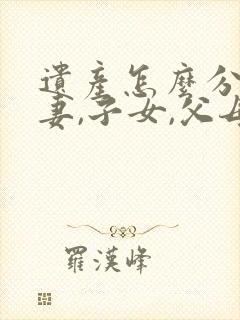 遺產怎麼分
妻,子女,父母
羅漢峰